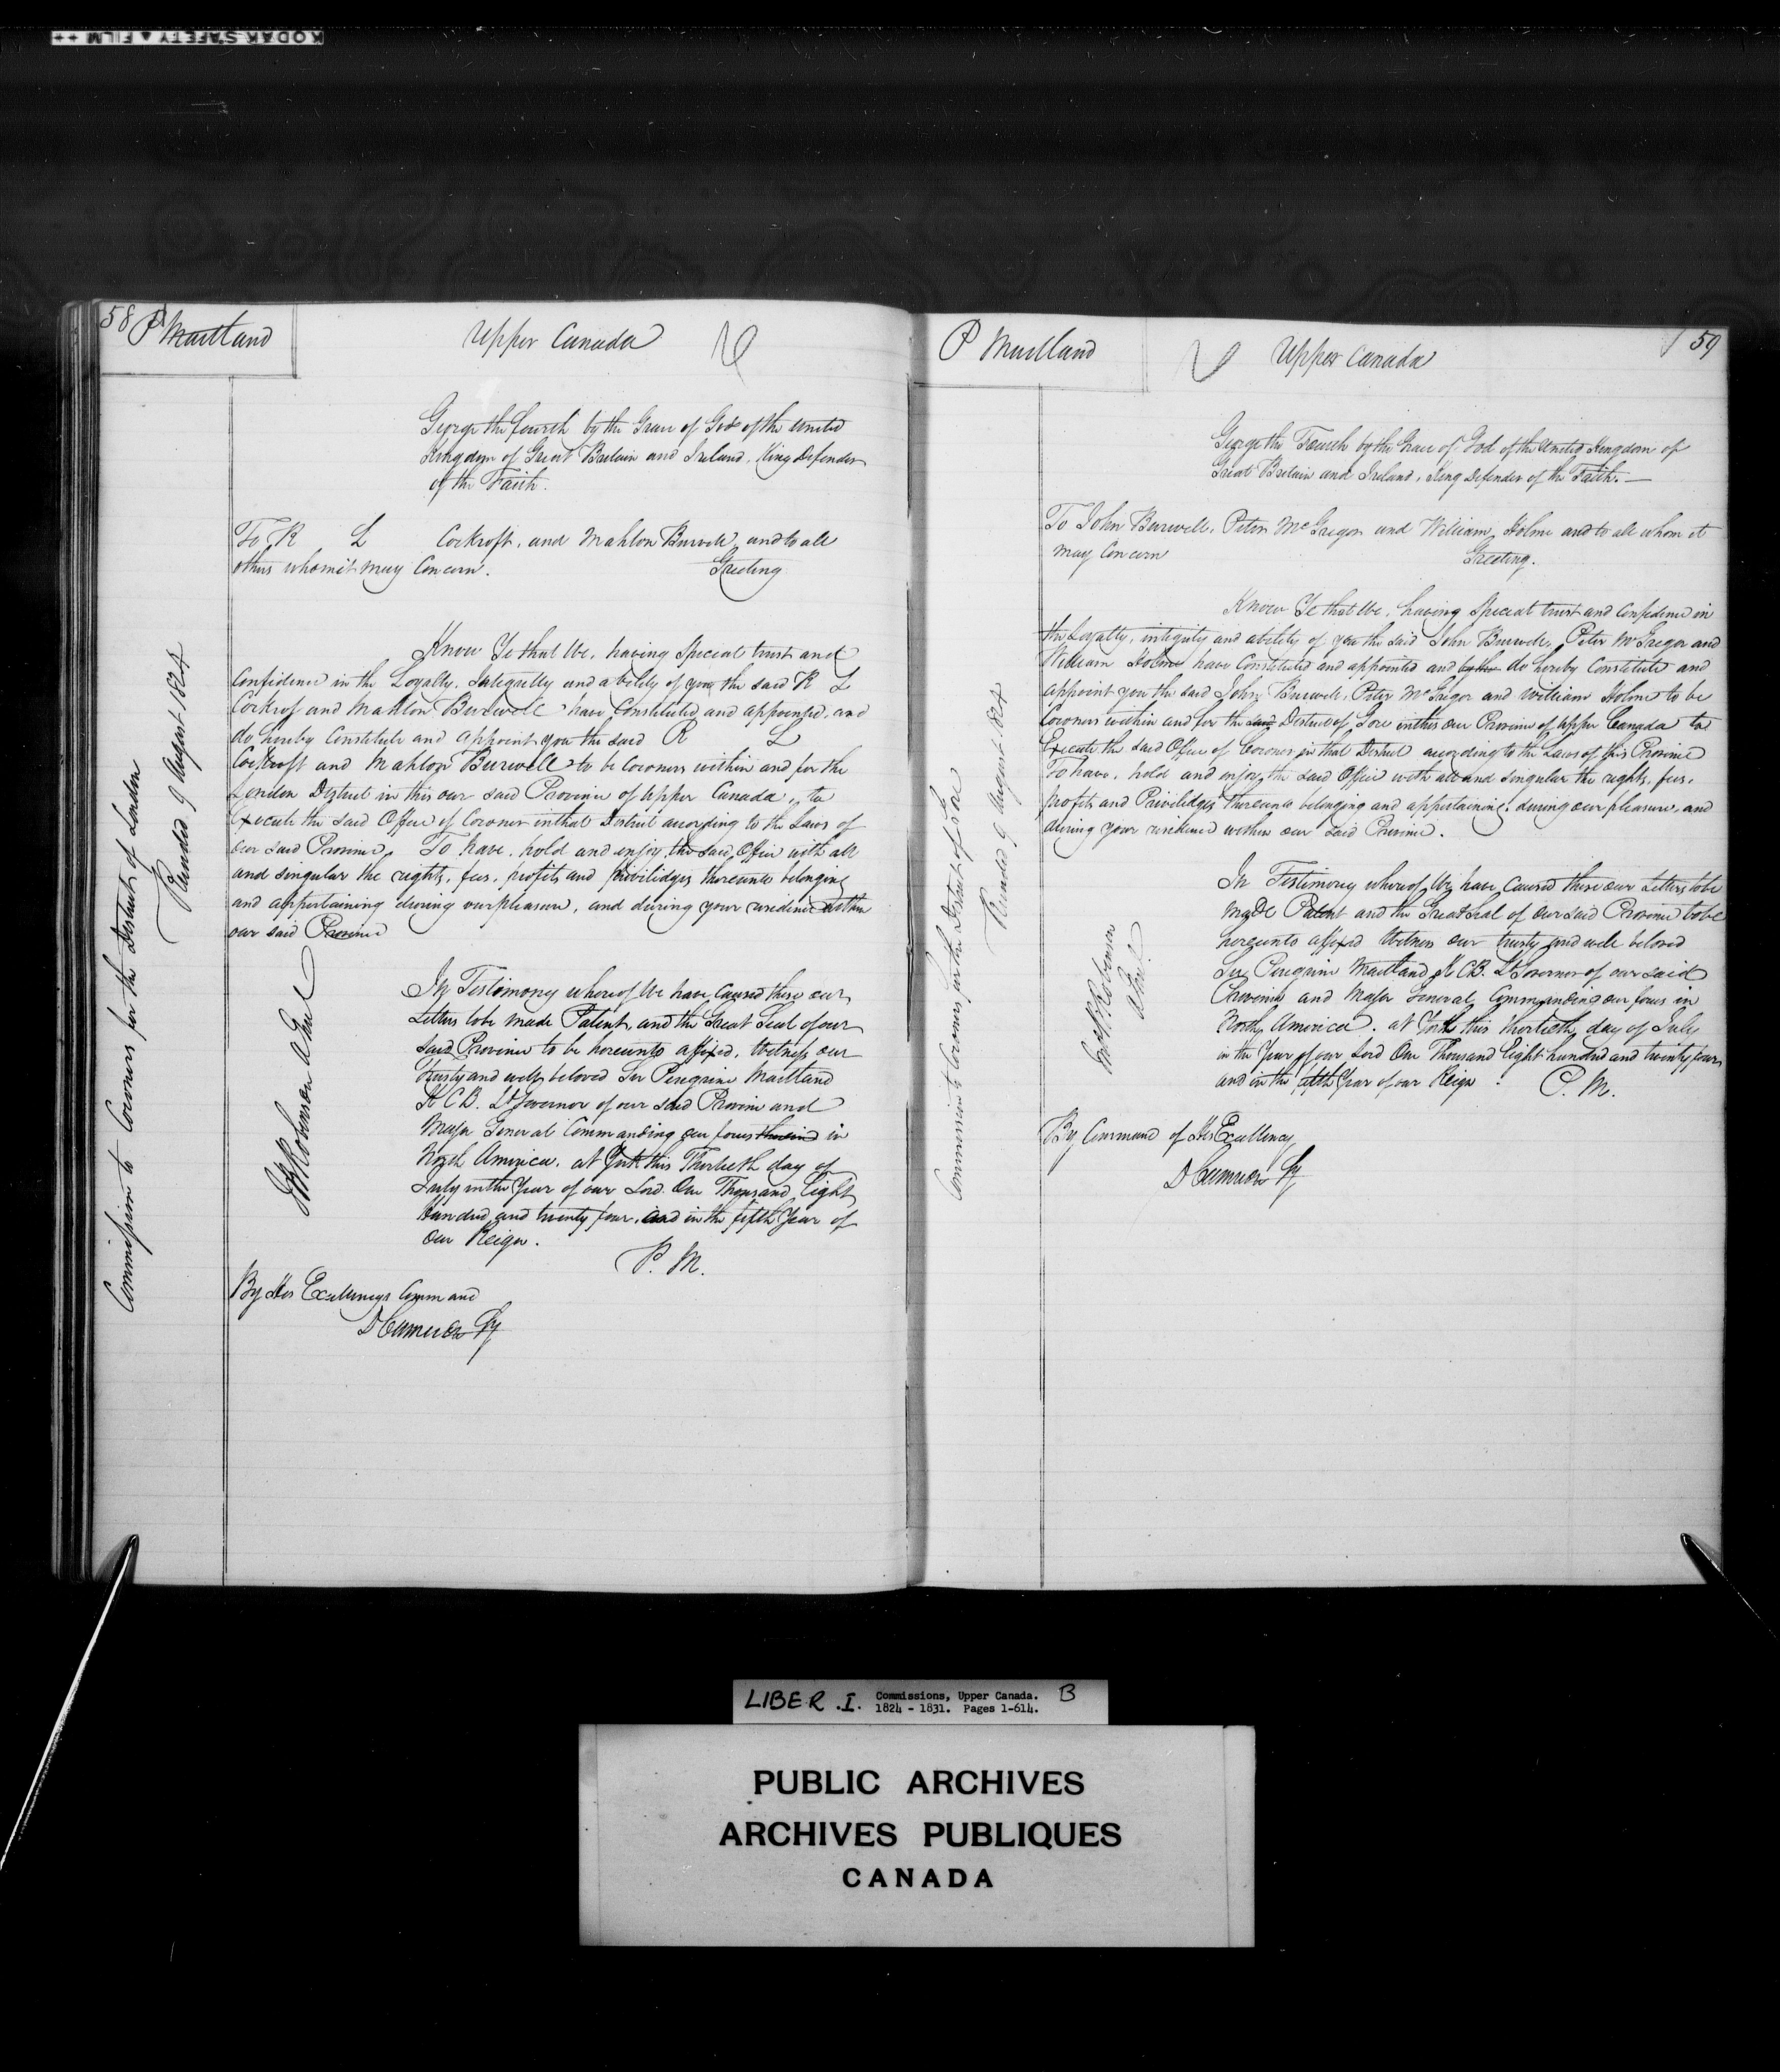 KODAK SAFETY FILM
58
P Maitland
Upper Canada
George the fourth by the Grace of God of the United
Kingdom of Great Britain and Ireland, King Defender
of the Faith.
To R L Cockroft, and Mahlon Burwell, and to all
others whom it may Concern. Greeting
Know Ye that We, having Special trust and
Confidence in the Loyalty, Integrity and ability of you the said R L
Cockrof and Mahlon Burwell have Constituted and appointed, and
do hereby Constitute and appoint you the said R L
Cockroft and Mahlon Burwell to be Coroners within and for the
London District in this our said Province of Upper Canada, to
Execute the said Office of Coroner in that District according to the Laws of
our said Province, To have, hold and enjoy the said Office with all
and singular the rights, fees, profits and Privilidges thereunto belonging
and appertaining during our pleasure, and during your residence within
our said Province
In Testimony whereof We have Caused these our
Letters to be made Patent, and the Great Seal of our
said Province to be hereunto affixed, Witness our
trusty and well beloved Sir Peregrine Maitland
K C B. Lt Governor of our said Province and
Major General Commanding our forces therein in
North America. at York this Thirtieth day of
July in the Year of our Lord One Thousand Eight
hundred and twenty four, and in the fifth Year of
Our Reign.
P. M.
By His Excellencys Command
D Cameron Sy
Commission to Coroners for the District of London
Recorded 9 August 1824
JB Robinson A Genl
P Maitland
Upper Canada
59
George the Fourth by the Grace of God of the United Kingdom of
Great Britain and Ireland, King Defender of the Faith.—
To John Burwell, Peter McGregor and William Holme and to all whom it
may Concern Greeting.
Know Ye that We, having Special trust and Confidence in
the Loyalty, integrity and ability of you the said John Burwell, Peter McGregor and
William Holme have Constituted and appointed and do hereby Constitute and
appoint you the said John Burwell, Peter McGregor and William Holme to be
Coroners within and for the said District of Gore in this our Province of Upper Canada to
Execute the said Office of Coroner in that District according to the Laws of this Province
To have, hold and enjoy the said Office with all and singular the rights, fees,
profits and Privilidges thereunto belonging and appertaining, during our pleasure, and
during your residence within our said Province.
In Testimony whereof We have Caused these our Letters to be
made Patent and the Great Seal of our said Province to be
hereunto affixed Witness our trusty and well beloved
Sir Peregrine Maitland K CB. Lt Governor of our said
Province and Major General Commanding our forces in
North America. at York this thirtieth day of July
in the Year of our Lord One Thousand Eight hundred and twenty four
and in the fifth Year of our Reign. P. M.
By Command of His Excellency,
D Cameron Sy
Commission to Coroners for the District of Gore
Recorded 9 August 1824
Robinson
A Genl
LIBER .I. Commissions, Upper Canada. B
1824 - 1831. Pages 1-614.
PUBLIC ARCHIVES
ARCHIVES PUBLIQUES
CANADA